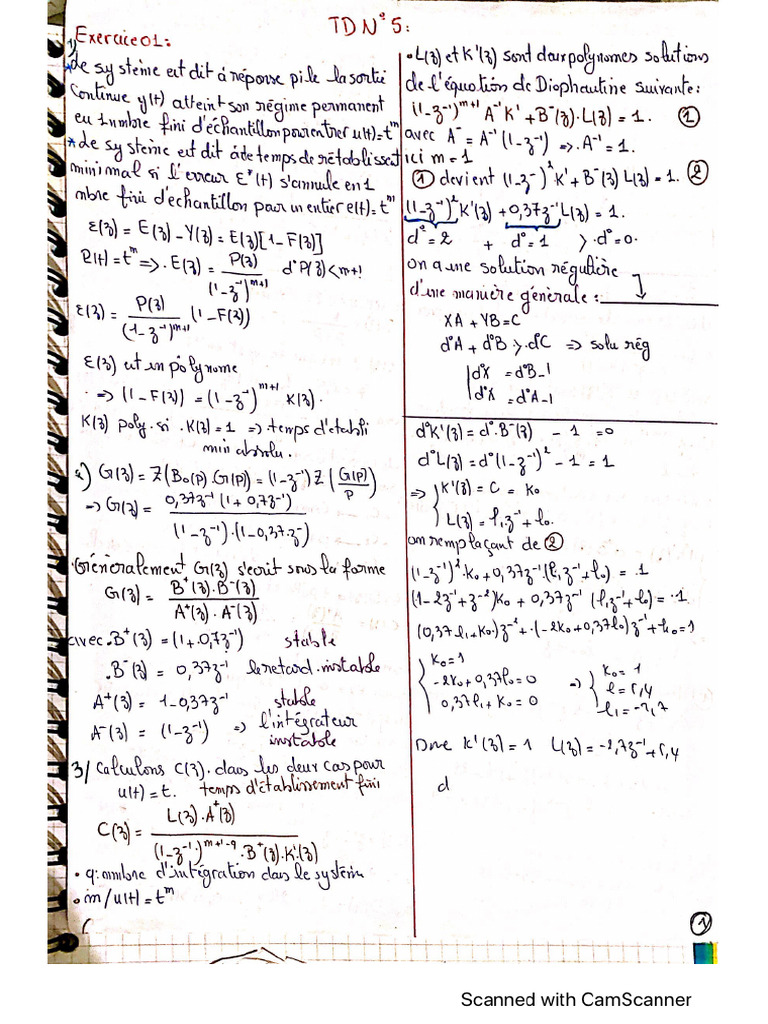 TD N° 5:
Exercice 01:
1)
* Le système est dit à réponse pile la sortie
continue y(t) atteint son régime permanent
en 1 nmbre fini d'échantillon pour entrer u(t)=t^m
* Le système est dit à de temps de rétablissent
minimal si l'erreur ε*(t) s'annule en 1
nmbre fini d'echantillon pour un entier e(t)=t^m
ε(z) = E(z) - Y(z) = E(z)[1-F(z)]
R(t)=t^m => E(z) = P(z) / (1-z⁻¹)^(m+1) d°P(z)<m+1
ε(z) = P(z) / (1-z⁻¹)^(m+1) (1-F(z))
ε(z) est un pôlynome
=> (1-F(z)) = (1-z⁻¹)^(m+1) K(z).
K(z) poly. si K(z)=1 => temps d'établi
min absolu.
G(z) = Z(B₀(p).G(p)) = (1-z⁻¹) Z(G(p)/p)
=> G(z) = 0,37z⁻¹(1+0,7z⁻¹) / (1-z⁻¹).(1-0,37.z⁻)
Générâlement G(z) s'ecrit sous la forme
G(z) = B⁺(z).B⁻(z) / A⁺(z).A⁻(z)
avec B⁺(z) = (1+0,7z⁻¹) stable
B⁻(z) = 0,37z⁻¹ le retard instable
A⁺(z) = 1-0,37z⁻¹ stable
A⁻(z) = (1-z⁻¹) => l'intégrateur
instable
3/ Calculons C(z) dans les deux cas pour
u(t)=t. temps d'établissement fini
C(z) = L(z).A⁺(z) / (1-z⁻¹)^(m+1-q).B⁺(z).K'(z)
• q: nmbre d'intégration dans le systém
• m/u(t)=t^m
(
• L(z) et K'(z) sont deux polynomes solutions
de l'équation de Diophautine suivante:
(1-z⁻¹)^(m+1) A⁻K' + B⁻(z).L(z) = 1. ①
avec A⁻ = A⁻¹(1-z⁻¹) => A⁻¹=1.
ici m=1
① devient (1-z⁻¹)²K' + B⁻(z) L(z) = 1. ②
(1-z⁻¹)²K'(z) + 0,37z⁻¹L(z) = 1.
d°=2 + d°=1 > d°=0.
on a une solution régulière
d'une manière générale:
XA + YB = C
d°A + d°B > d°C => solu rég
d°X = d°B-1
d°X = d°A-1
d°K'(z) = d°.B⁻(z) - 1 = 0
d°L(z) = d°(1-z⁻¹)² - 1 = 1
=> { K'(z) = C = k₀
L(z) = l₁z⁻¹ + l₀.
on remplaçant de ②
(1-z⁻¹)².k₀ + 0,37z⁻¹.(l₁z⁻¹+l₀) = 1
(1-2z⁻¹+z⁻²)k₀ + 0,37z⁻¹ (l₁z⁻¹+l₀) = 1
(0,37l₁+k₀)z⁻² + (-2k₀+0,37l₀)z⁻¹ + k₀=1
{ k₀=1
-2k₀+0,37l₀=0
0,37l₁+k₀=0
=> { k₀=1
l=5,4
l₁=-2,7
Donc K'(z)=1 L(z)=-2,7z⁻¹+5,4
d
1
Scanned with CamScanner